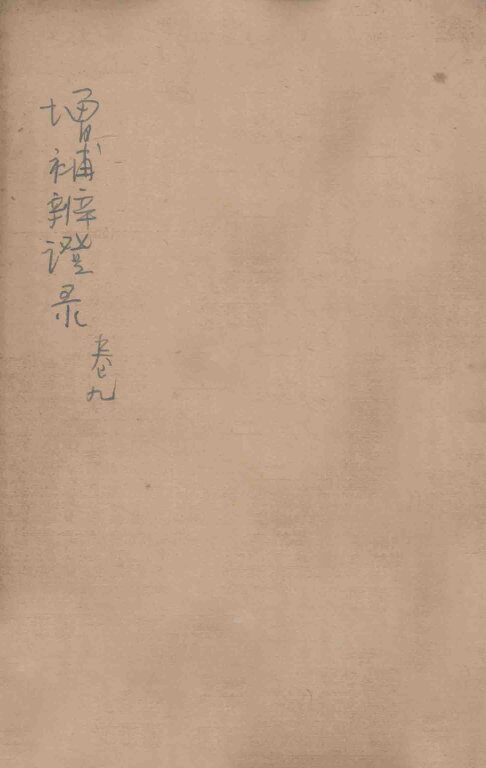 增補辨證录
卷九